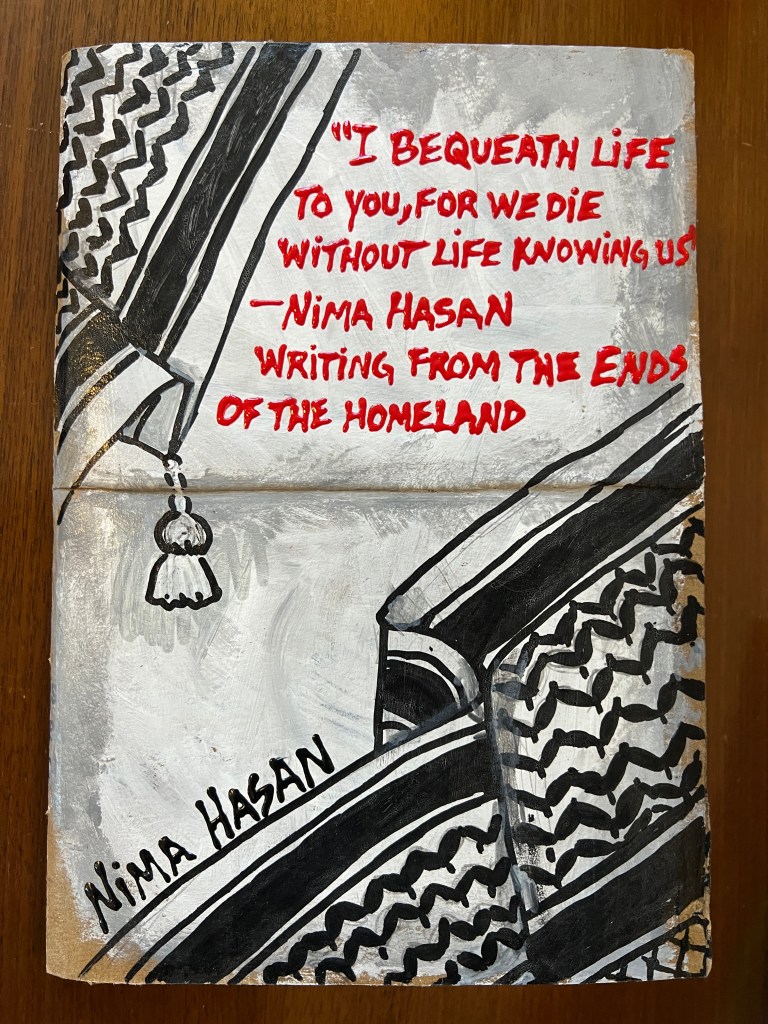 "I BEQUEATH LiFE
TO YOU, FOR WE DiE
WiTHOUT LiFE KNOWiNG US"
—NiMA HASAN
WRiTiNG FROM THE ENDS
OF THE HOMELAND
NiMA HASAN